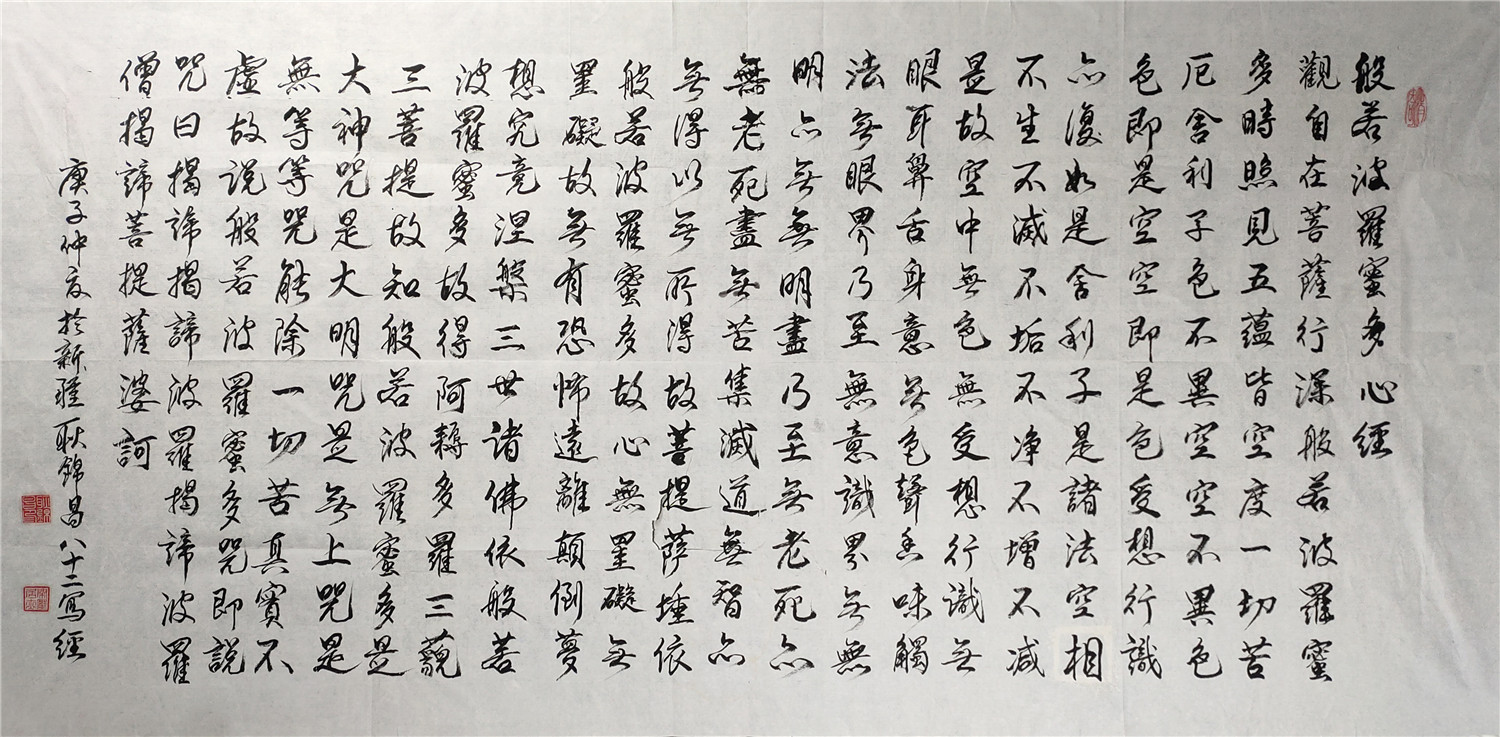 般若波羅蜜多心經
觀自在菩薩行深般若波羅蜜
多時照見五蘊皆空度一切苦
厄舍利子色不異空空不異色
色即是空空即是色受想行識
亦復如是舍利子是諸法空相
不生不滅不垢不净不增不减
是故空中無色無受想行識無
眼耳鼻舌身意無色聲香味觸
法無眼界乃至無意識界無無
明亦無無明盡乃至無老死亦
無老死盡無苦集滅道無智亦
無得以無所得故菩提萨埵依
般若波羅蜜多故心無罣礙無
罣礙故無有恐怖遠離顛倒夢
想究竟涅槃三世諸佛依般若
波羅蜜多故得阿耨多羅三藐
三菩提故知般若波羅蜜多是
大神咒是大明咒是無上咒是
無等等咒能除一切苦真實不
虛故説般若波羅蜜多咒即説
咒曰揭諦揭諦波羅揭諦波羅
僧揭諦菩提薩婆訶
庚子仲夏於新疆耿錦昌八十二寫經